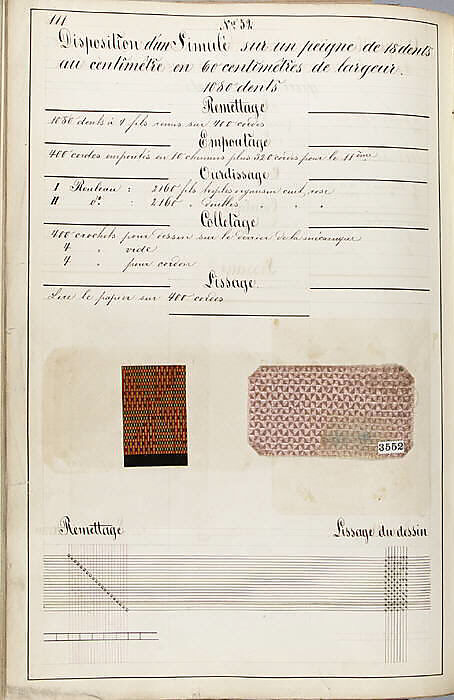 111
Nº 52.
Disposition d'un Simulé sur un peigne de 18 dents
au centimètre en 60 centimètres de largeur.
1080 dents
Remettage
1080 dents à 4 fils remis sur 400 cordes
Empoutage
400 cordes empoutés en 10 chemins plus 320 cordes pour le 11ème
Ourdissage
I Rouleau : 2160 fils triples organsin cuit, rose
II dº : 2160 " doubles " " "
Colletage
400 crochets pour dessin sur le derrière de la mécanique
4 " vide
4 " pour cordon
Lissage.
Lire le papier sur 400 cordes
3552
Remettage
Lissage du dessin